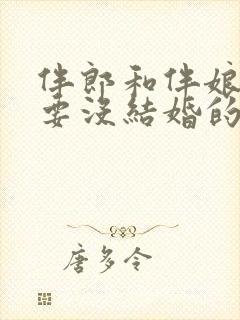 伴郎和伴娘
要沒結婚的
唐多令